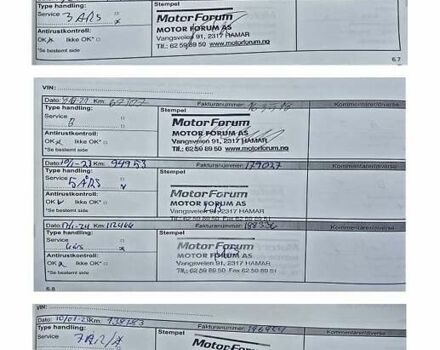 Type handling:
Service 3 ÅRS
Stempel
MotorForum
MOTOR FORUM AS
Vangsveien 91, 2317 HAMAR
Tlf.: 62 59 89 50 www.motorforum.no
Antirustkontroll:
OK Ikke OK*
*Se bestemt side
6.7
VIN:
Dato: Km. Fakturanummer: Kommentarer/øverse
Type handling:
Service
Stempel
MotorForum
MOTOR FORUM AS
Vangsveien 91, 2317 HAMAR
Tlf.: 62 59 89 50 www.motorforum.no
Antirustkontroll:
OK Ikke OK*
*Se bestemt side
Dato: Km. 94953 Fakturanummer: 179027 Kommentarer/øverse
Type handling:
Service 5 ÅRS
Stempel
MotorForum
MOTOR FORUM AS
Vangsveien 91, 2317 HAMAR
Tlf. 62 59 89 50 Fax 62 59 89 51
Antirustkontroll:
OK Ikke OK*
*Se bestemt side
Dato: Km. 112464 Fakturanummer: 188336 Kommentarer/øverse
Type handling:
Service
Stempel
MotorForum
MOTOR FORUM AS
Vangsveien 91, 2317 HAMAR
Tlf. 62 59 89 50 Fax 62 59 89 51
Antirustkontroll:
OK Ikke OK*
*Se bestemt side
6.8
VIN:
Dato: Km. Fakturanummer: Kommentarer/øverse
Type handling:
Service
Stempel
MotorForum